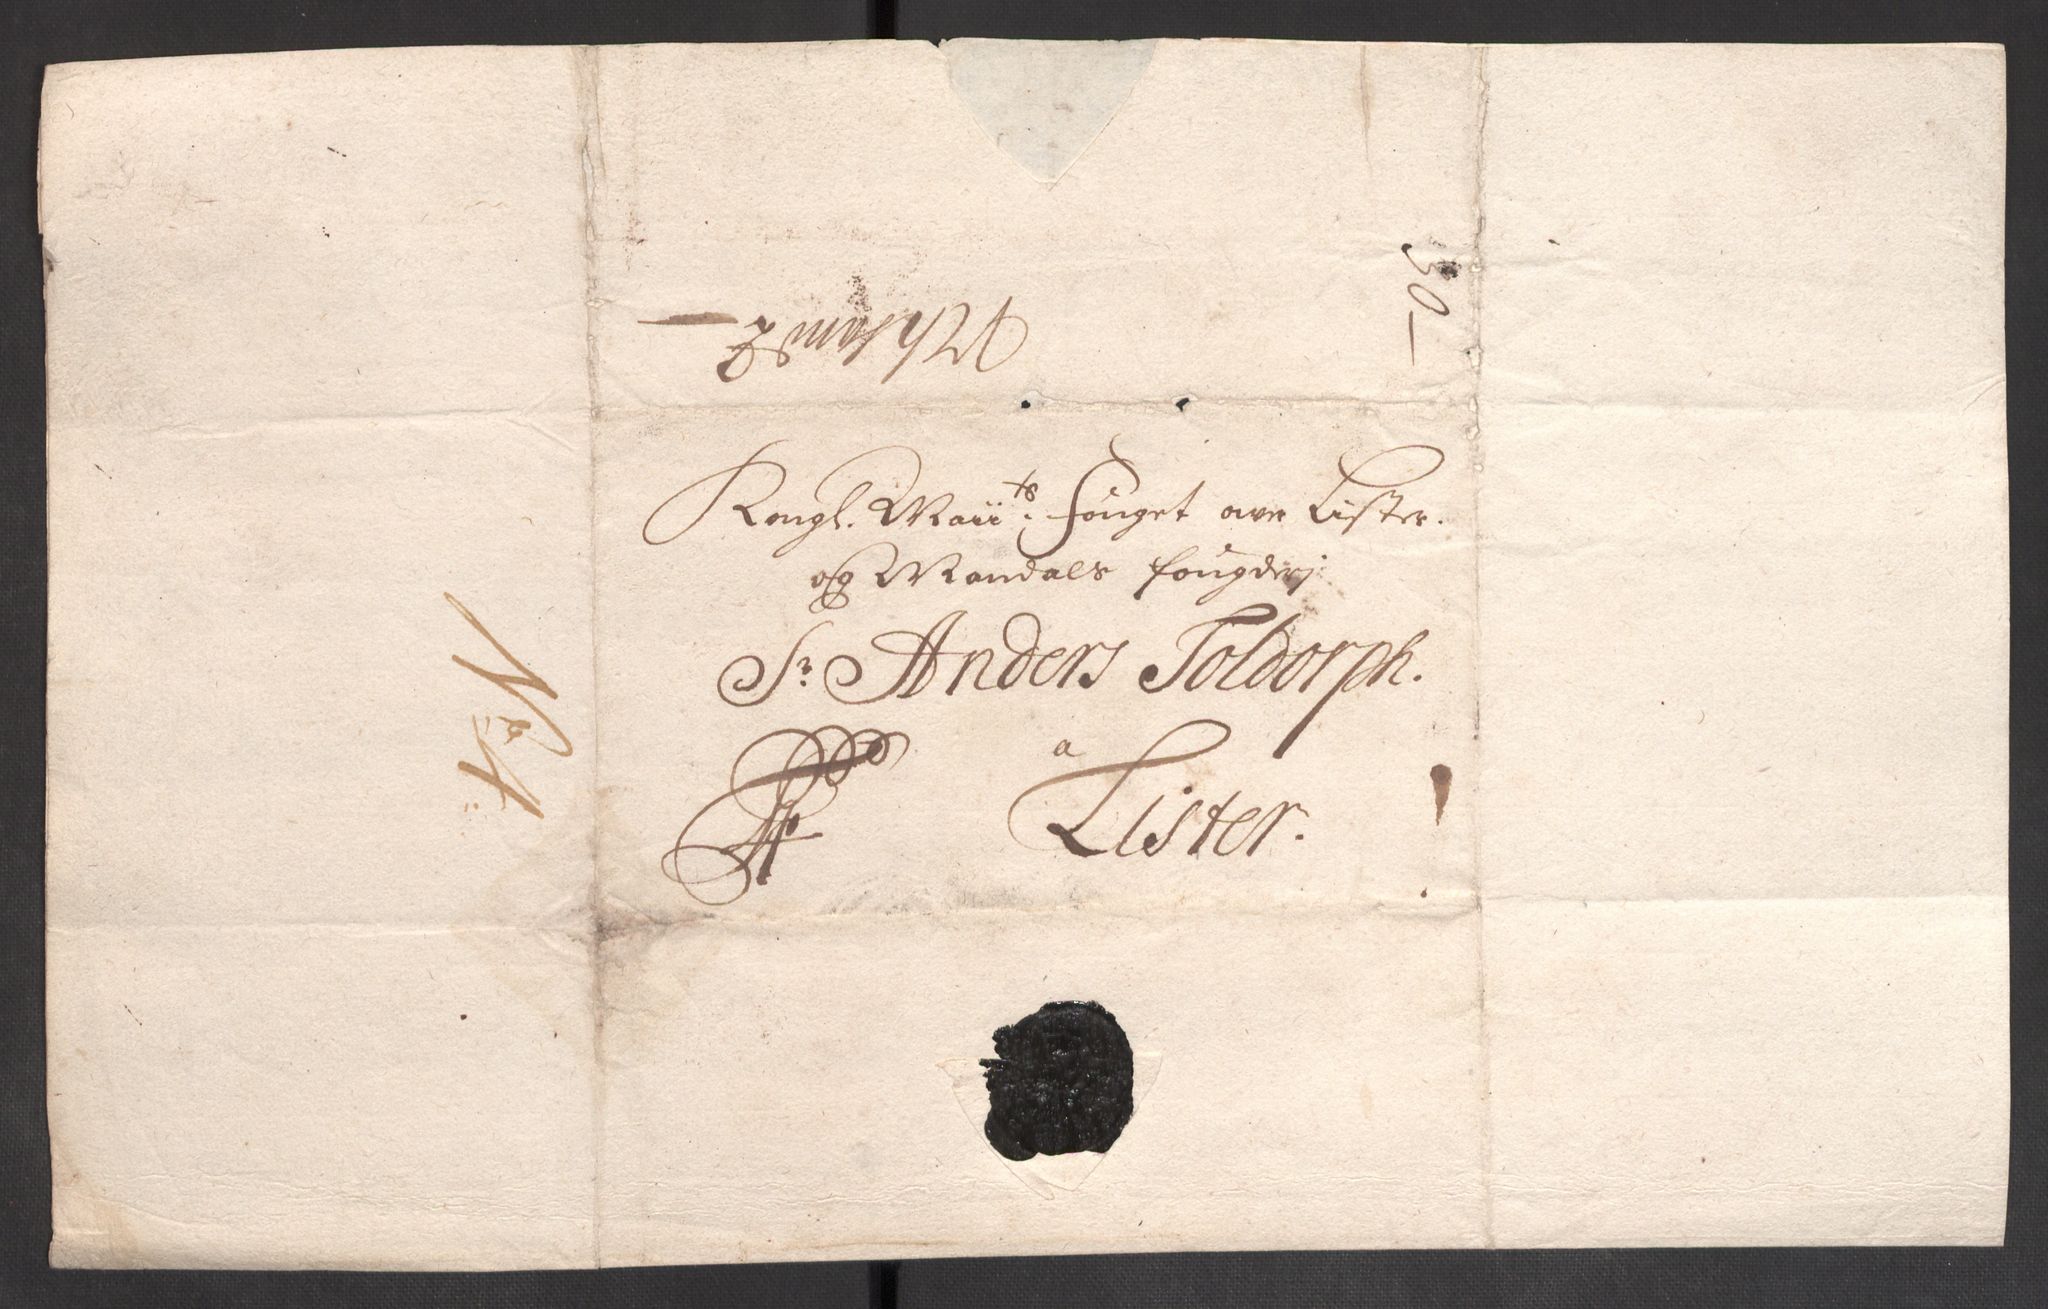 30
Kongl. Maÿts. fouget over Lister.
og Mandals fougderj
Sr. Anders Toldorph.
a
Lister.